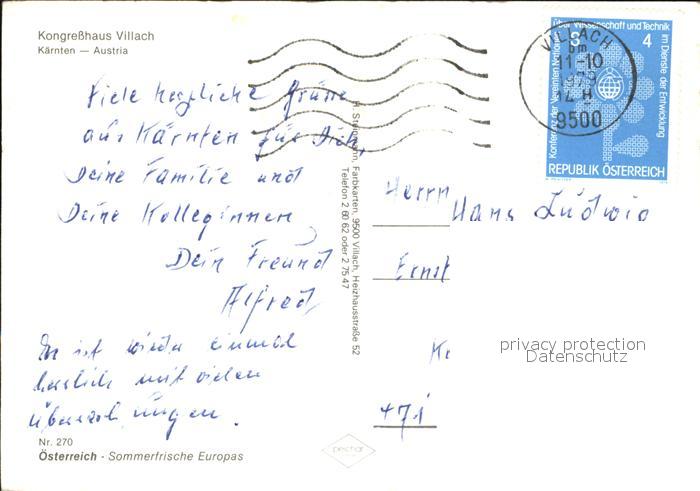 Kongreßhaus Villach
Kärnten — Austria
Viele herzliche Grüsse
aus Kärnten für Dich,
Deine Familie und
Deine Kolleginnen
Dein Freund
Alfred
Es ist wieder einmal
herrlich mit vielen
Überraschungen.
Nr. 270
Österreich - Sommerfrische Europas
Farbkarten, 9500 Villach, Heizhausstraße 52
Telefon 2 60 62 oder 2 75 47
pechar
über Wissenschaft und Technik
Konferenz der Vereinten Nationen
im Dienste der Entwicklung
S 4
REPUBLIK ÖSTERREICH
VILLACH
bm
11-10
9500
Herrn
Hans Ludwig
Ernst
privacy protection
Datenschutz